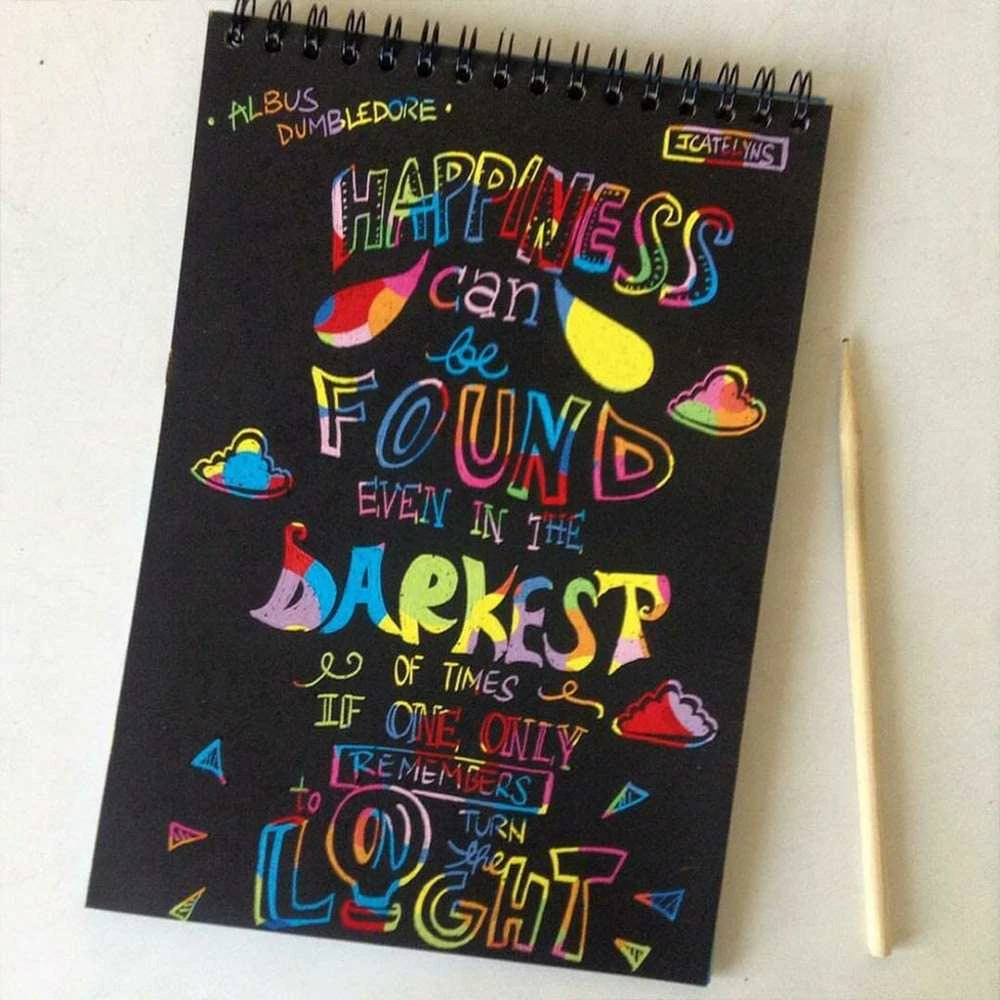 • ALBUS DUMBLEDORE •
JCATELYNS
HAPPINESS
can
be
FOUND
EVEN IN THE
DARKEST
OF TIMES
IF ONE ONLY
REMEMBERS
to TURN
ON the
LIGHT